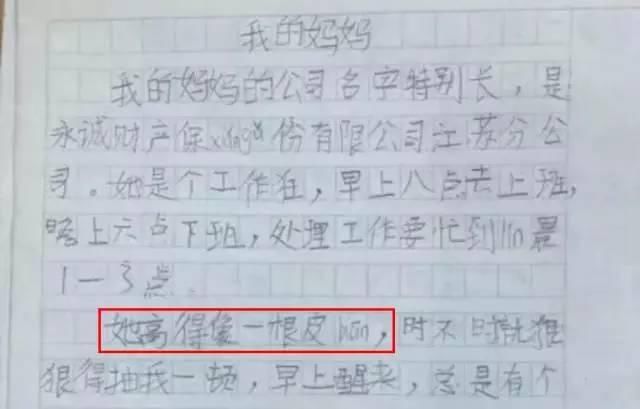 我的妈妈
我的妈妈的公司名字特别长，是
永诚财产保xiǎngǔ份有限公司江苏分公
司。她是个工作狂，早上八点去上班，
晚上六点下班，处理工作要忙到lín晨
1一3点。
她高得像一根皮biān，时不时就狠
狠得抽我一顿，早上醒来，总是有个